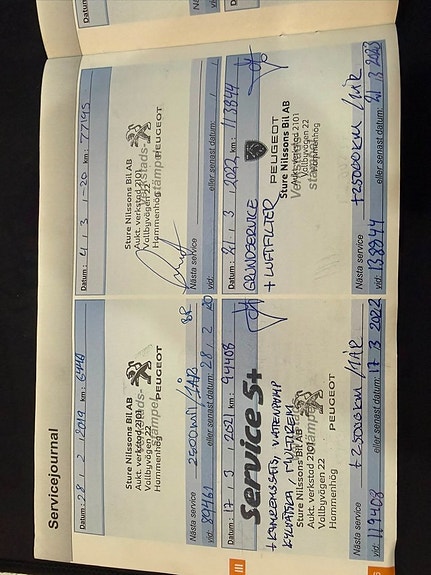 Servicejournal
Datum: 28 / 2 / 2019 km: 6446
Sture Nilssons Bil AB
Aukt. verkstad 2101
Vollbyvägen 22
Hammenhög
PEUGEOT
Nästa service 2500 mil / 1 ÅR
vid: 89461 eller senast datum: 28 / 2 20
Datum: 4 / 3 / -20 km: 77195
Sture Nilssons Bil AB
Aukt. verkstad 2101
Vollbyvägen 22
Hammenhög
Verkstads-
stämpel
PEUGEOT
Nästa service
vid: eller senast datum: / /
Datum: 17 / 3 / 2021 km: 94408
Service 5+
+ KAMREMSSATS, VATTENPUMP
KYLVÄTSKA / MULTIREM
Sture Nilssons Bil AB
Aukt. verkstad 2101
Vollbyvägen 22
Hammenhög
stämpel
PEUGEOT
Nästa service +25000KM / 1ÅR
vid: 119408 eller senast datum: 17 3 2022
Datum: 21 / 3 / 2022 km: 113844
GRUNDSERVICE
+ LUFTFILTER
PEUGEOT
Sture Nilssons Bil AB
Aukt. verkstad 2101
Vollbyvägen 22
Hammenhög
Nästa service +25000KM / 1ÅR
vid: 138844 eller senast datum: 21 3 2023
III